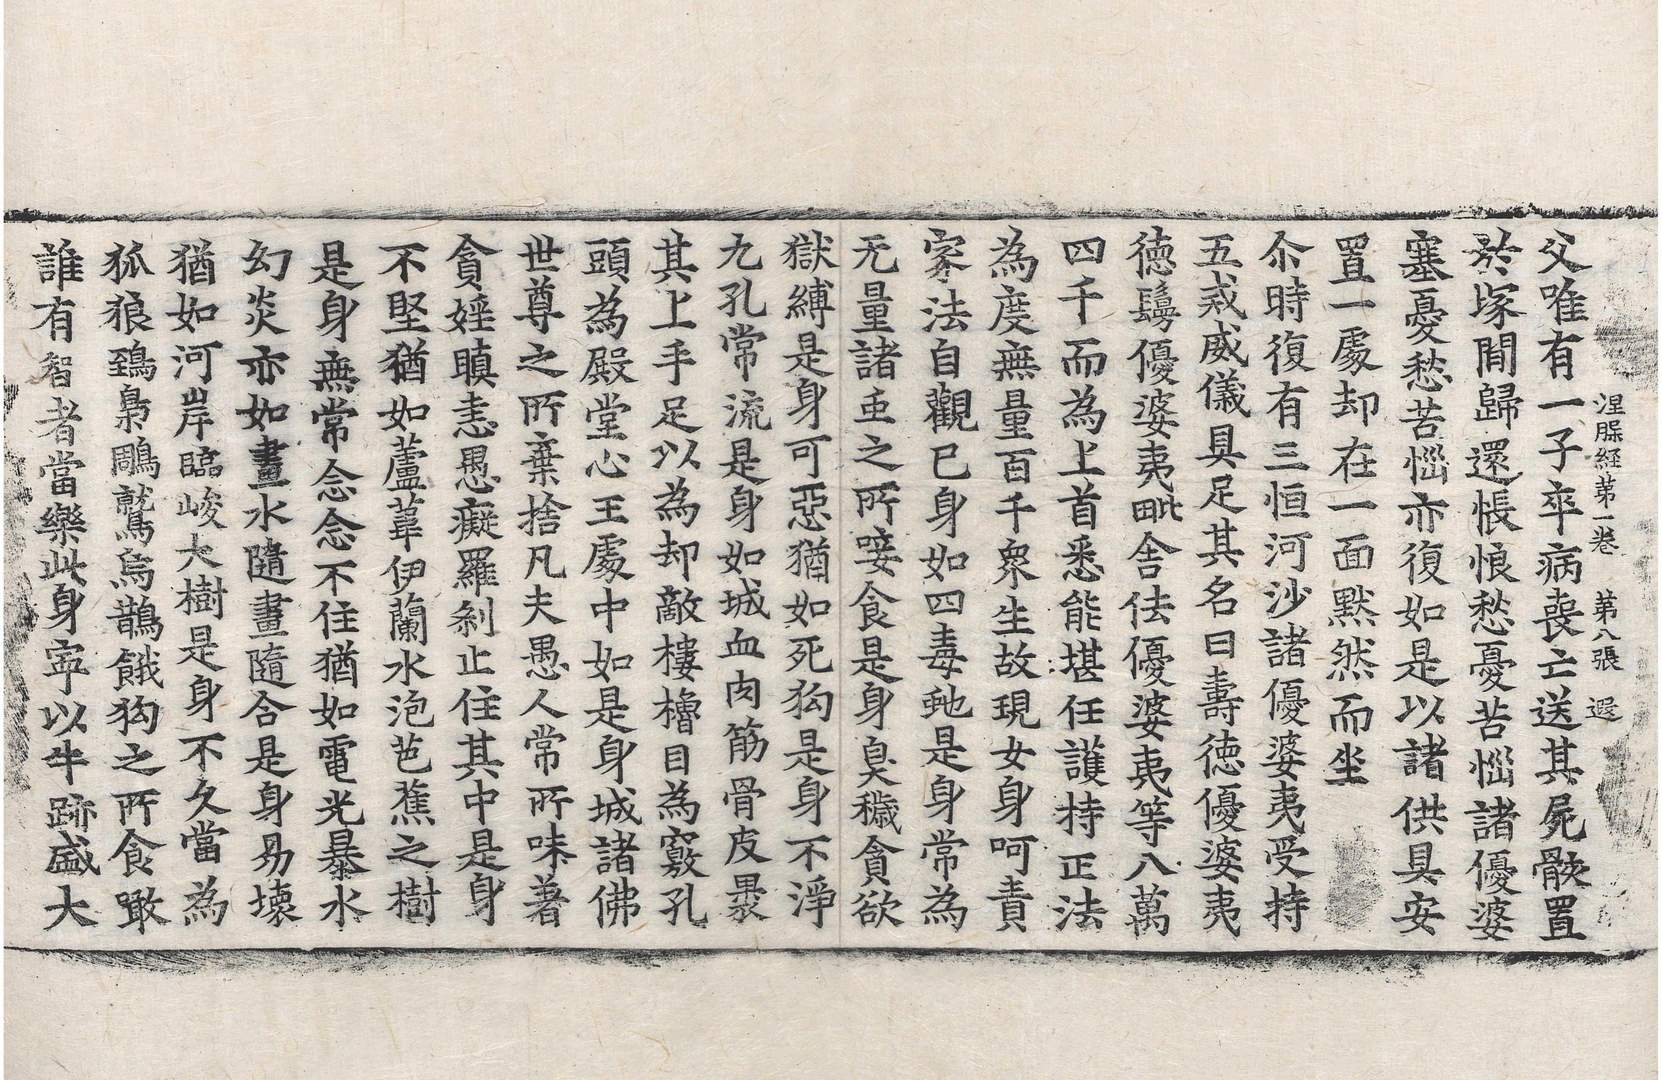 涅脲経苐一卷 苐八張 遐
父唯有一子卒病喪亡送其屍骸置
於塚間歸還悵恨愁憂苦惱諸優婆
塞憂愁苦惱亦復如是以諸供具安
置一處却在一面默然而坐
尒時復有三恒河沙諸優婆夷受持
五戒威儀具足其名曰壽德優婆夷
德鬘優婆夷毗舍佉優婆夷等八萬
四千而為上首悉能堪任護持正法
為度無量百千衆生故現女身呵責
家法自觀己身如四毒虵是身常為
无量諸虫之所唼食是身臭穢貪欲
獄縛是身可惡猶如死狗是身不淨
九孔常流是身如城血肉筋骨皮裹
其上手足以為却敵樓櫓目為竅孔
頭為殿堂心王處中如是身城諸佛
世尊之所棄捨凡夫愚人常所味著
貪婬瞋恚愚癡羅剎止住其中是身
不堅猶如蘆葦伊蘭水泡芭蕉之樹
是身無常念念不住猶如電光暴水
幻炎亦如畫水隨畫隨合是身易壞
猶如河岸臨峻大樹是身不久當為
狐狼鵄梟鵰鷲烏鵲餓狗之所食噉
誰有智者當樂此身寧以牛跡盛大